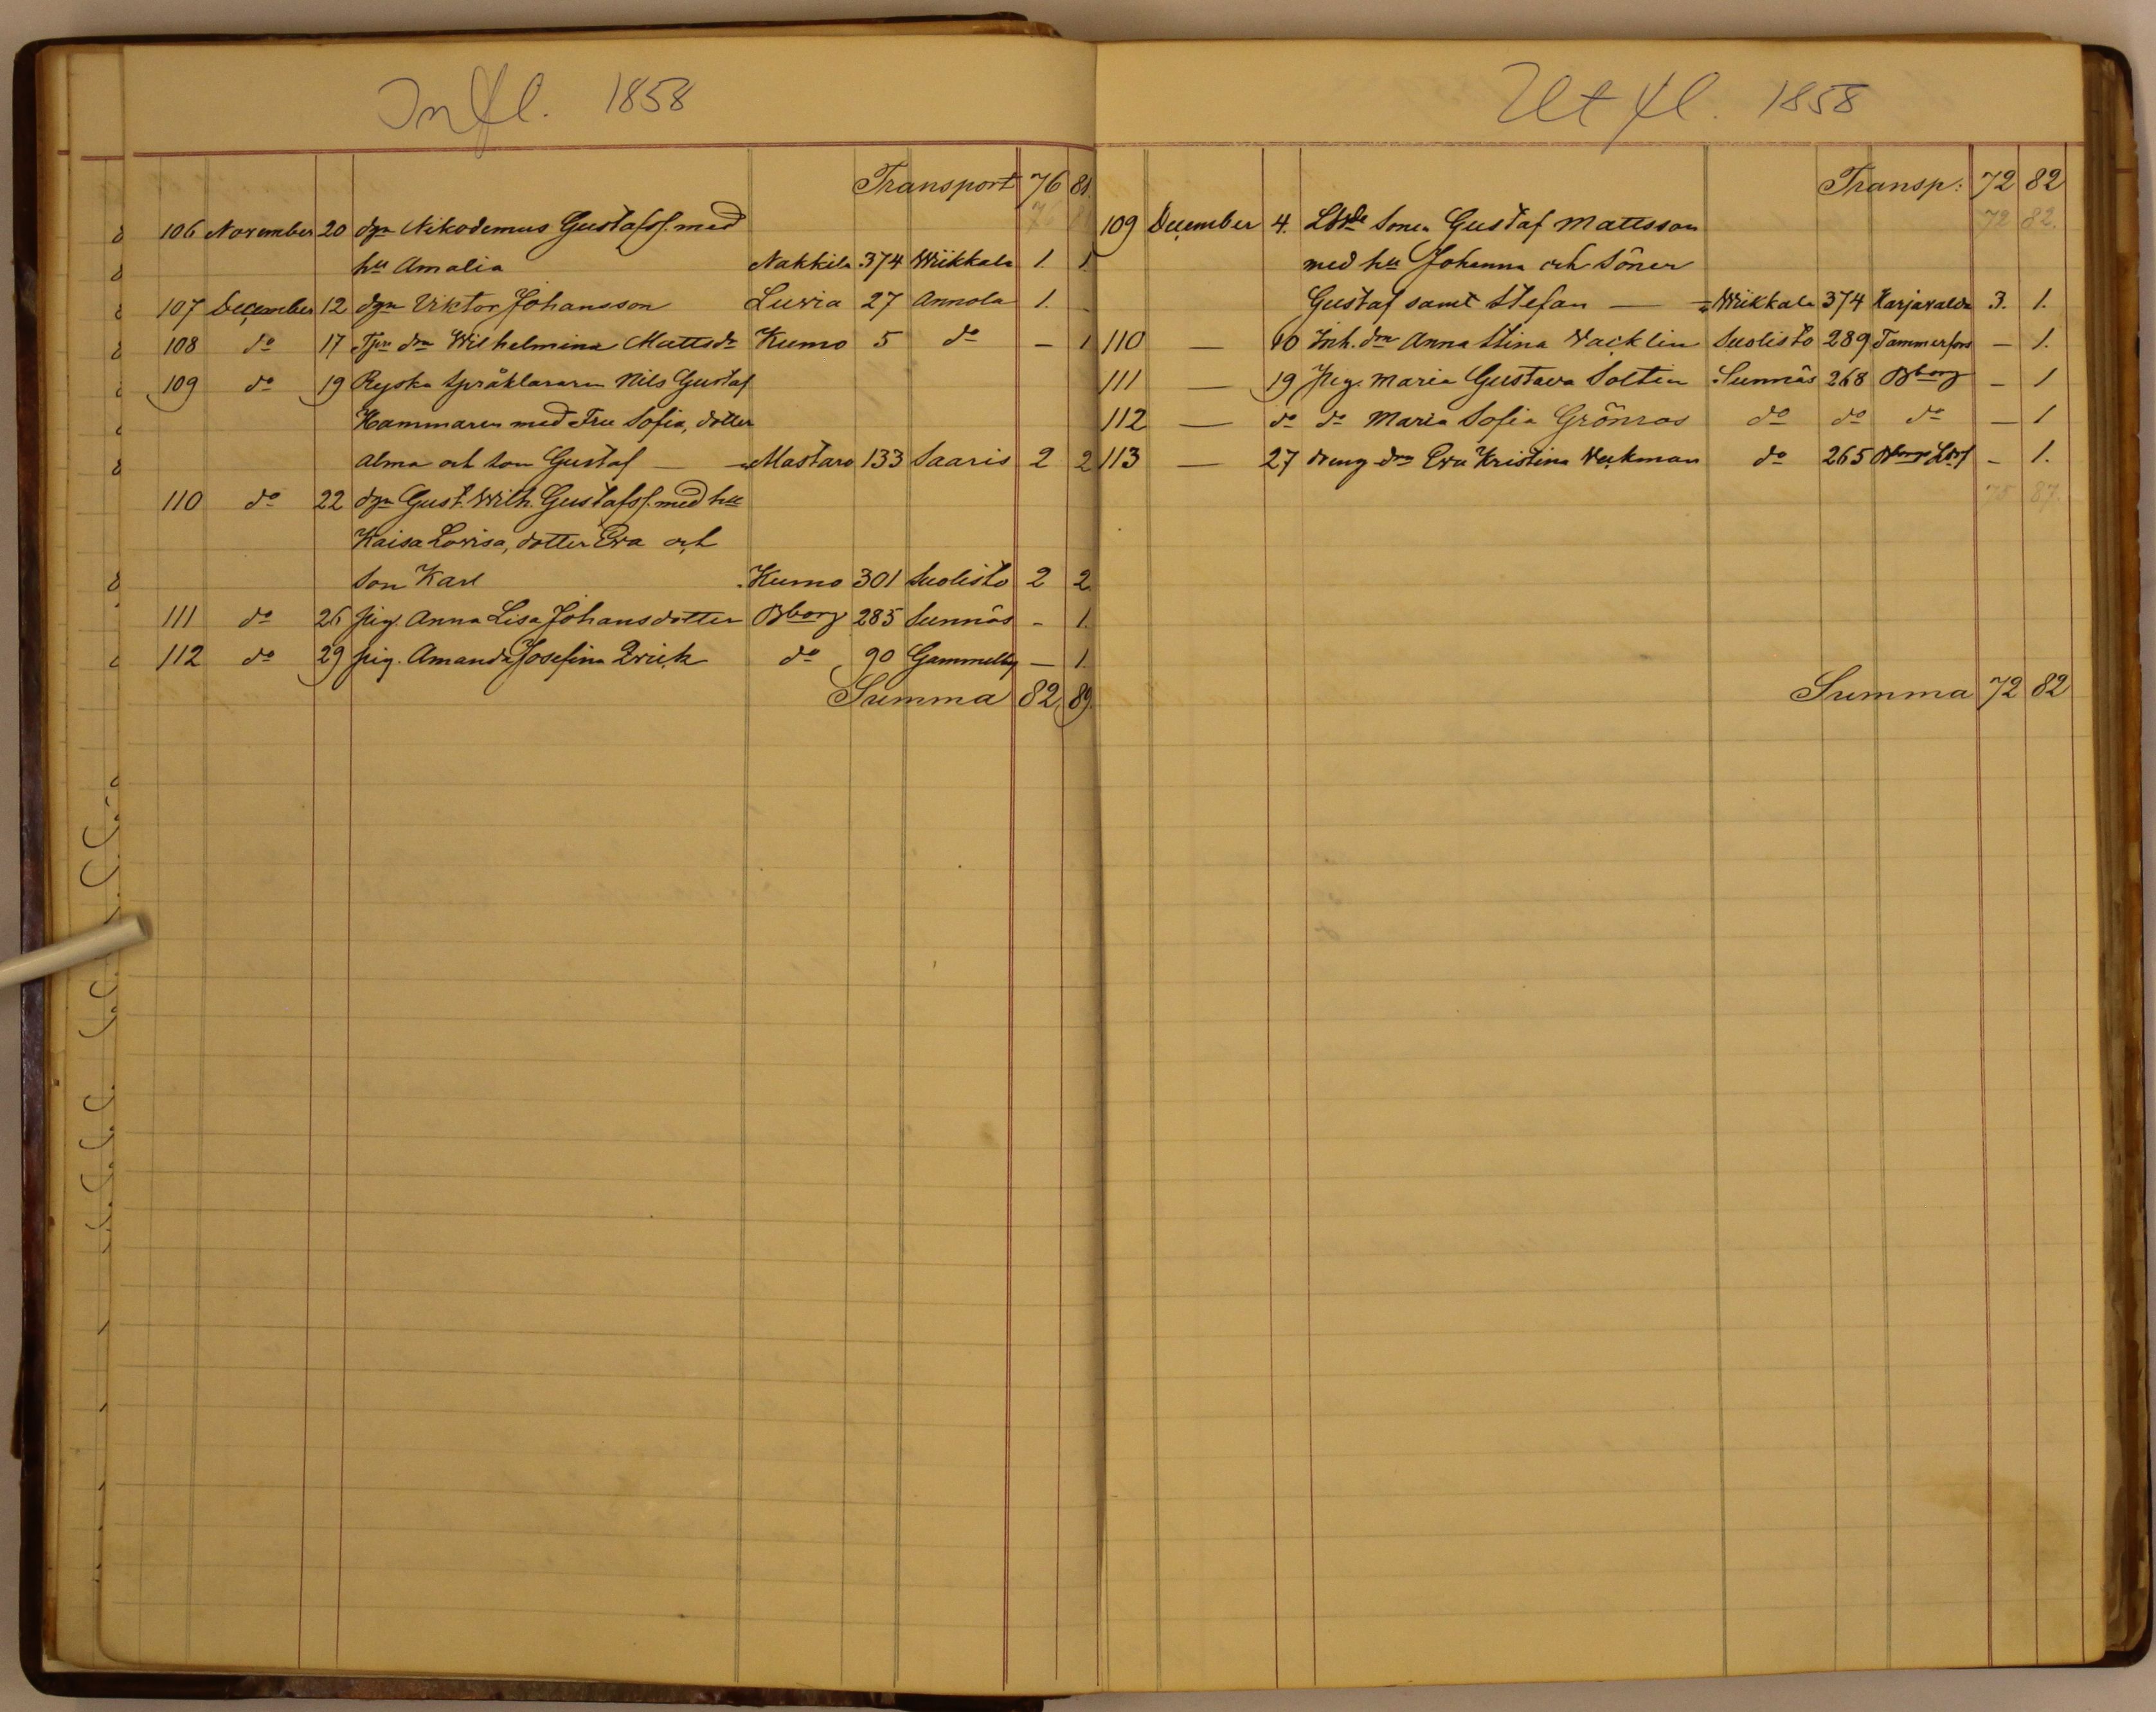 Infl. 1858
Transport 76 81
106 November 20 dgn Nikodemus Gustafss. med
hu Amalia Nakkila 374 Wiikkala 1. 1.
107 December 12 dgn Viktor Johansson Luvia 27 Annola 1. -
108 do 17 Tjen dra Wilhelmina Mattsdr Kumo 5 do - 1
109 do 19 Ryska språkläraren Nils Gustaf
Hammaren med Fru Sofia, dotter
Alma och son Gustaf — Mastaro 133 Saaris 2 2
110 do 22 dgn Gust. Wilh. Gustafss. med hu
Kaisa Lovisa, dotter Eva och
son Karl Kumo 301 Suolisto 2 2
111 do 26 pig. Anna Lisa Johansdotter Bborg 285 Sunnäs - 1.
112 do 29 pig. Amanda Josefina Qvick do 90 Gammelby — 1
Summa 82. 89.
Utfl. 1858
Transp: 72 82
72 82.
109 December 4. Sonen Gustaf Mattsson
med hu Johanna och Söner
Gustaf samt Stefan — Wiikkala 374 Harjavalda 3. 1.
110 — 10 Inh. dra Anna Stina Vacklin Suolisto 289 Tammerfors — 1.
111 — 19 Pig. Maria Gustava Soltin Sunnäs 268 Bborg — 1
112 — do do Maria Sofia Grönroos do do do — 1
113 — 27 dreng dra Eva Kristina Veckman do 265 Bborgs Ldsf - 1.
75 87.
Summa 72 82